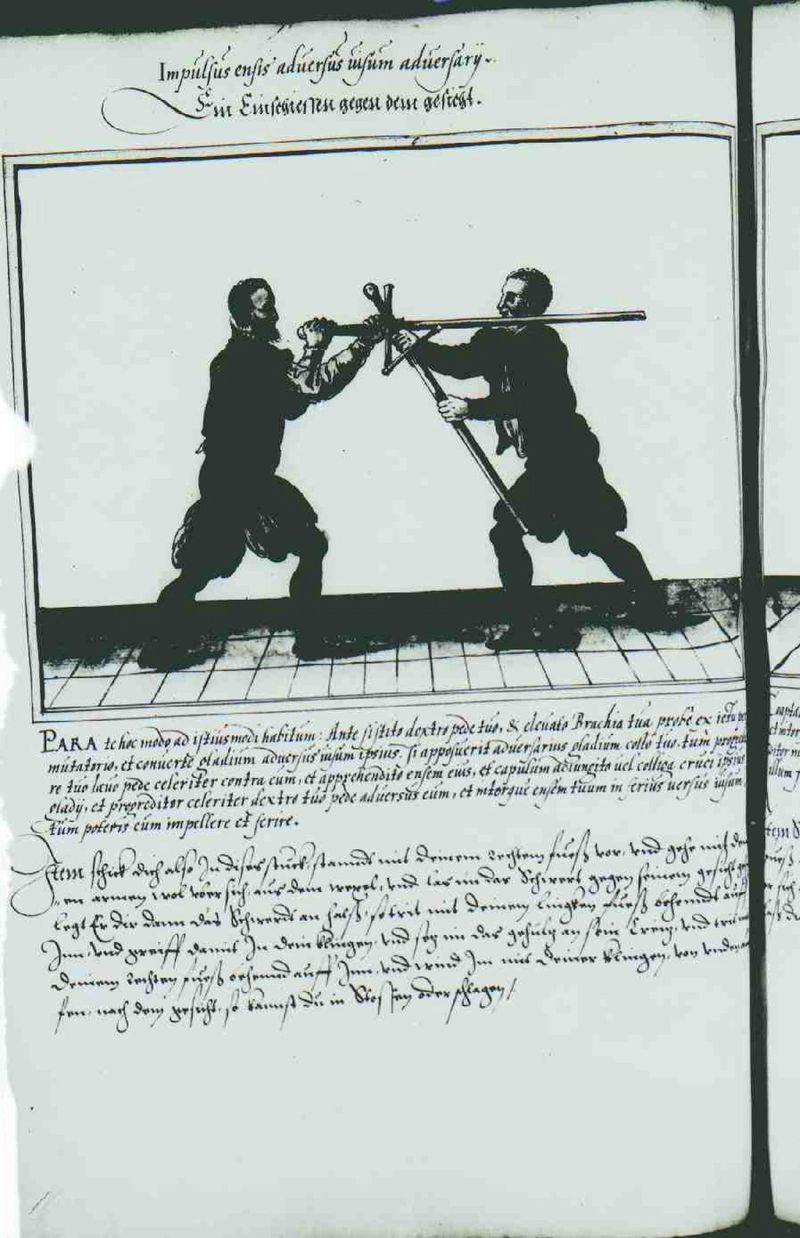 Impulsus ensis adversus visum adversarij.
Ein Einschiessen gegen dem gesicht.
PARA te hoc modo ad istiusmodi habitum: Ante sistito dextro pede tuo, & elevato Brachia tua probè ex ictu per
mutatorio, et converte gladium adversus visum ipsius. si apposuerit adversarius gladium collo tuo, tum
re tuo laevo pede celeriter contra eum, et apprehendito ensem eius, et capulum adiungito vel colliga cruci ipsius
gladij, et progreditor celeriter dextro tuo pede adversus eum, et intorque ensem tuum inferius versus visum
tum poteris eum impellere et ferire.
Item schick dich also In dises stuck, stannd mit deinem rechten fuess vor, vnd gehe mit dein
en armen wol vbersich, aus dem wexel, vnd las im das Schwert gegen seinem gesicht
legt Er dir dann das Schwerdt an hals, so trit mit deinem lingken fuess behendt auff
Inn, vnd greiff damit In dein klingen, vnd setz im das gehultz an sein Creitz, vnd trit
deinem rechten fuess behennd auff Inn, vnd wind Im mit deiner klingen, von vnden
fen, nach dem gesicht, so kannst du in Stossen oder schlagen /